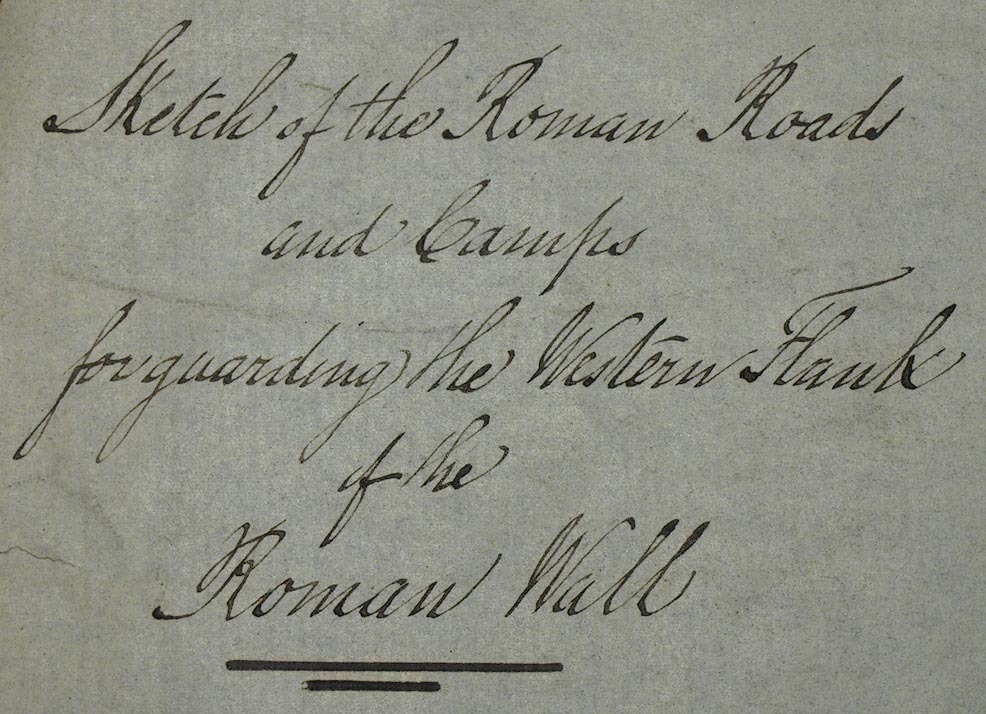 Sketch of the Roman Roads
and Camps
for guarding the Western Flank
of the
Roman Wall